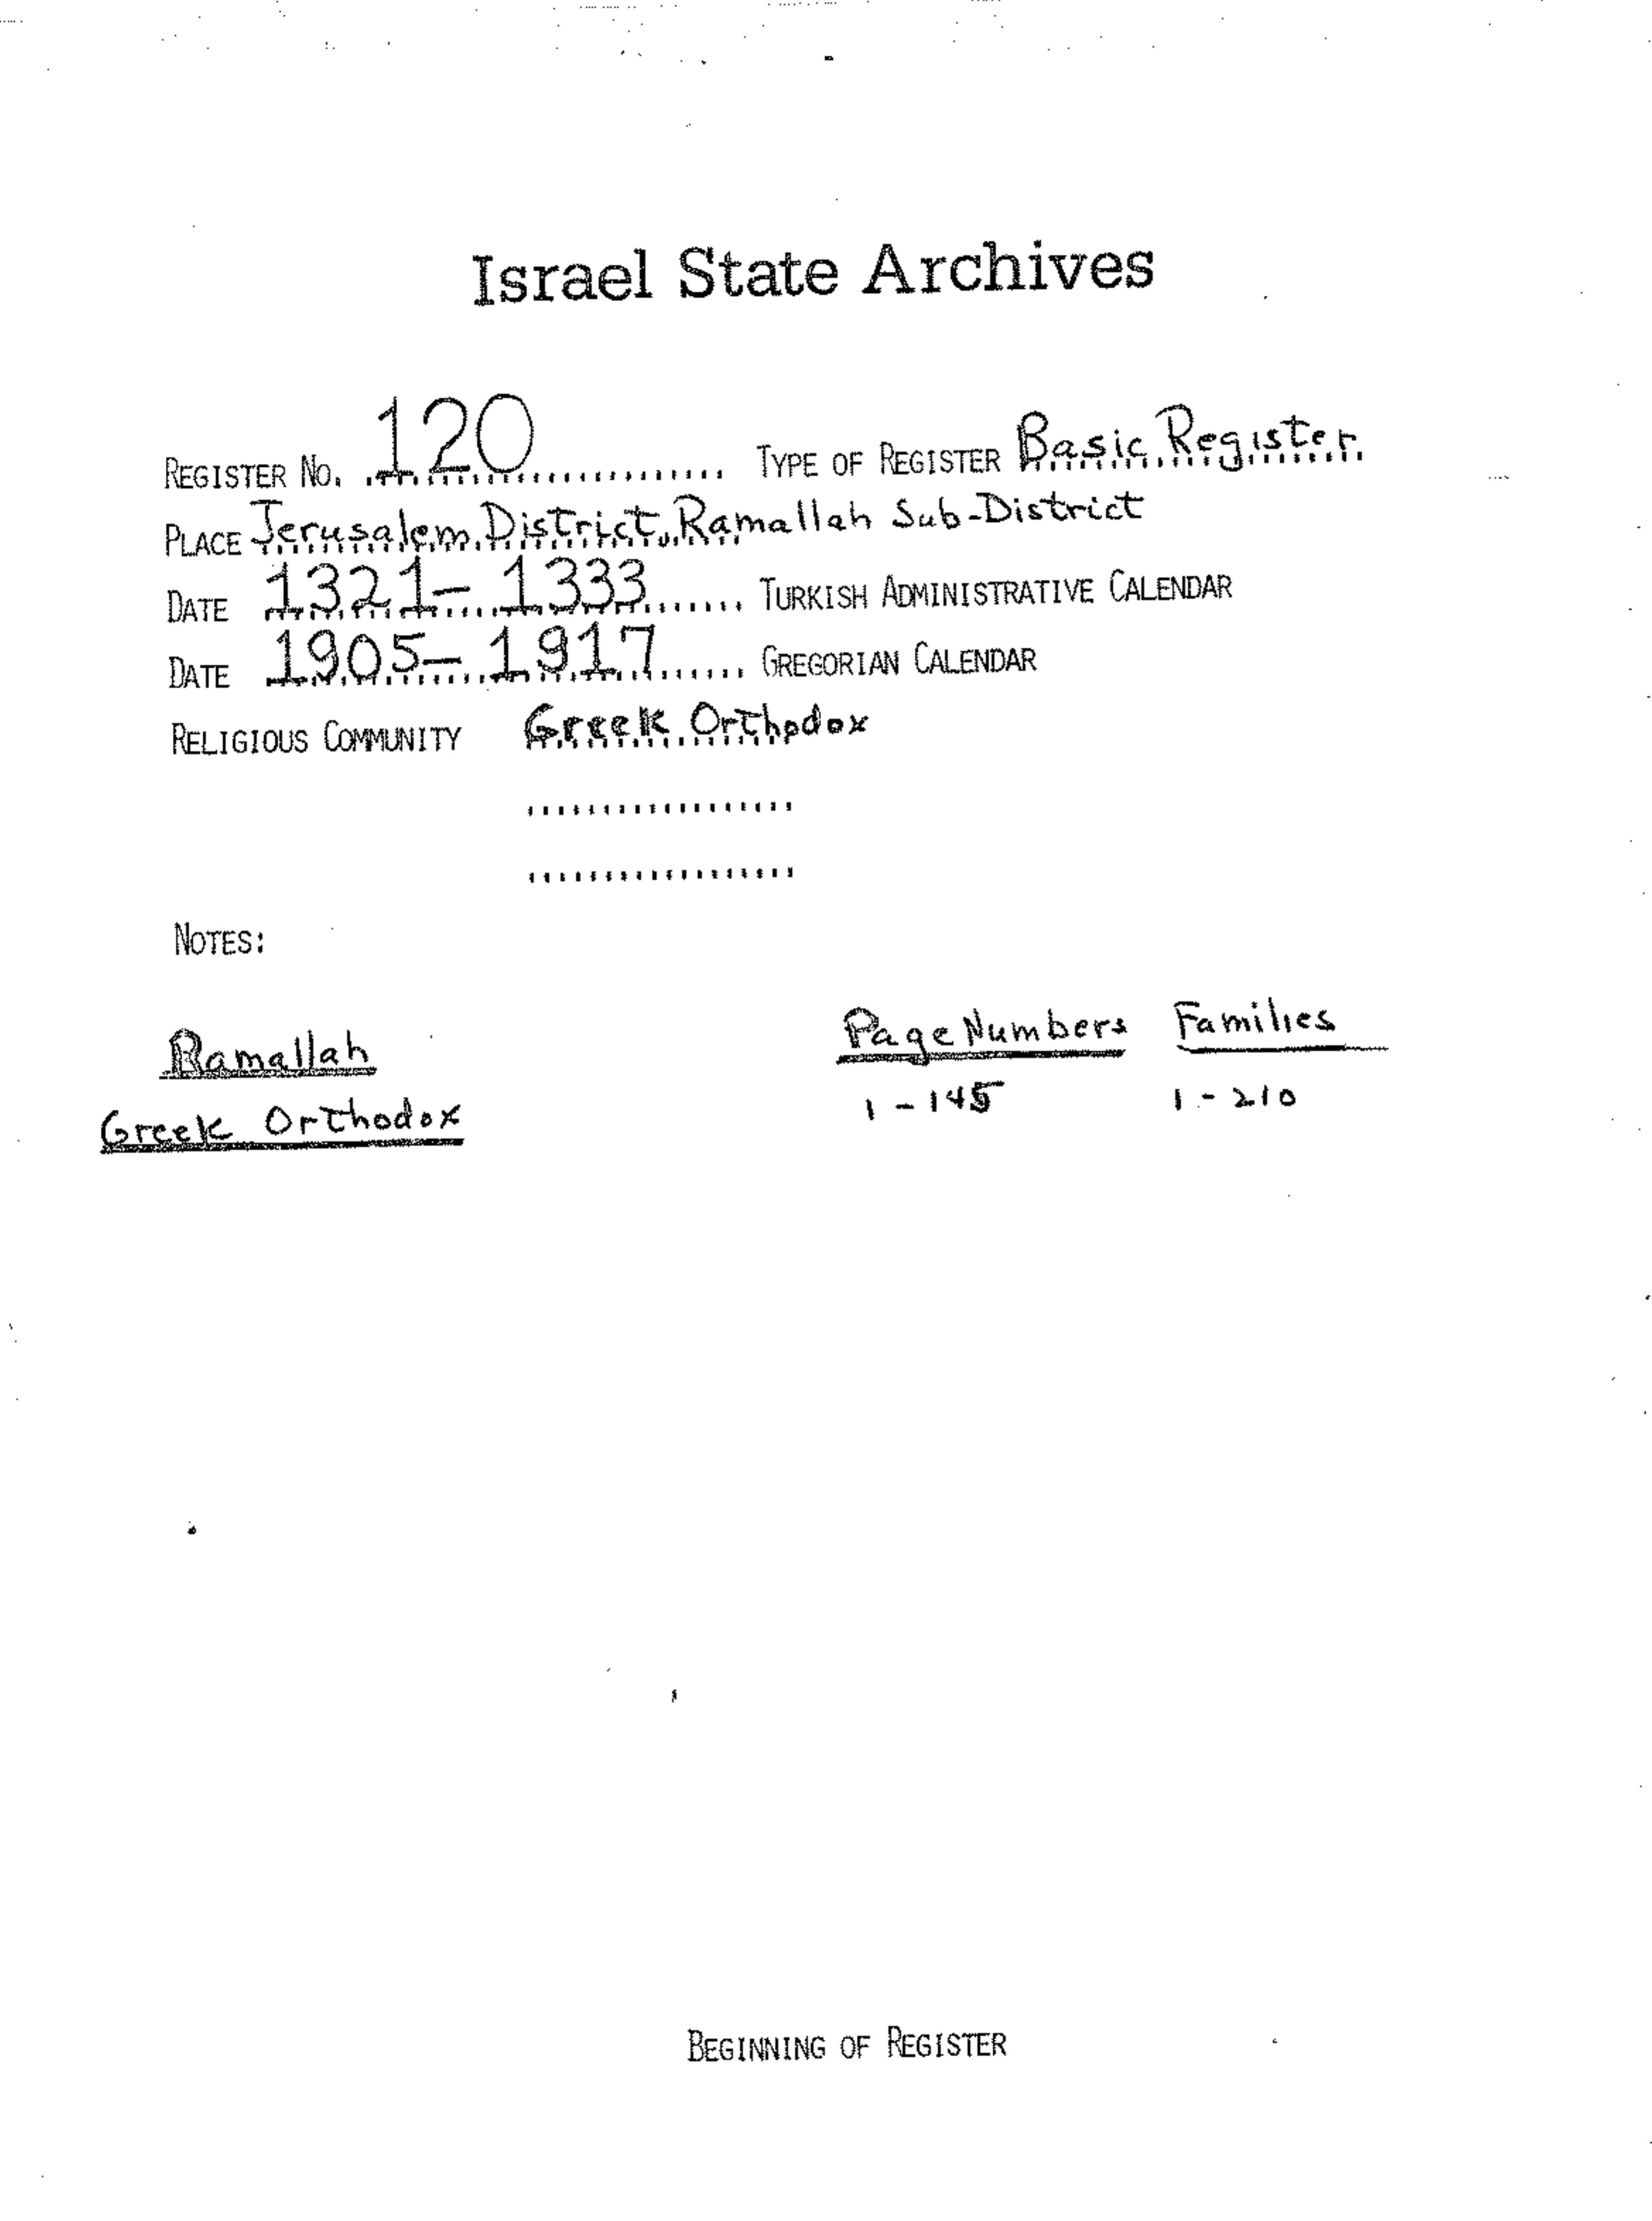 Israel State Archives
REGISTER NO. 120 TYPE OF REGISTER Basic Register
PLACE Jerusalem District, Ramallah Sub-District
DATE 1321-1333 TURKISH ADMINISTRATIVE CALENDAR
DATE 1905-1917 GREGORIAN CALENDAR
RELIGIOUS COMMUNITY Greek Orthodox
NOTES:
Ramallah Page Numbers Families
Greek Orthodox 1-145 1-210
BEGINNING OF REGISTER